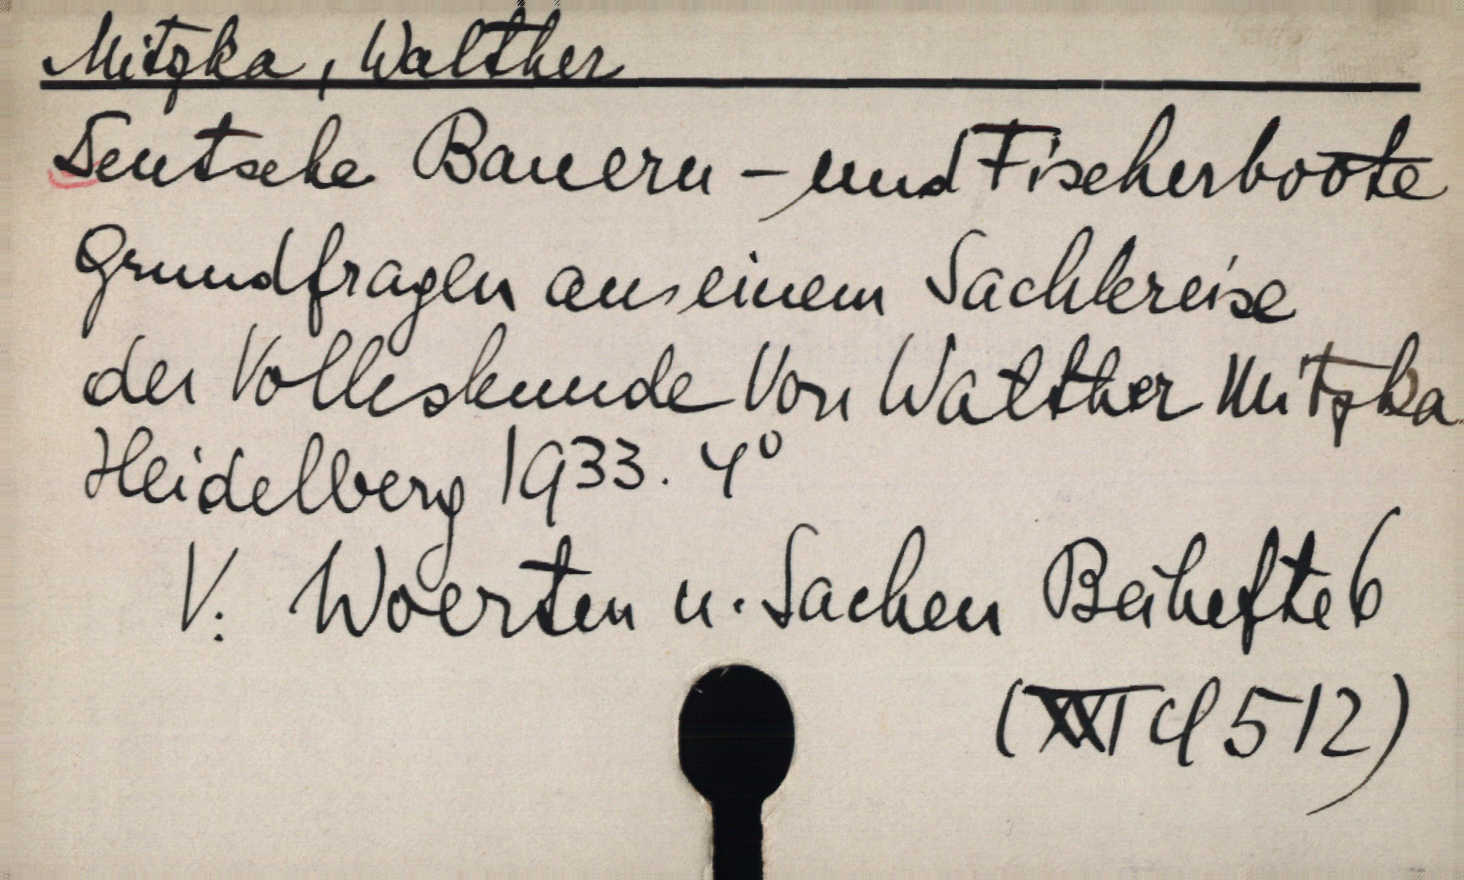 Mitzka, Walther
Deutsche Bauern - und Fischerboote
Grundfragen aus einem Sachkreise
der Volkskunde Von Walther Mitzka
Heidelberg 1933. 4°
V: Woerten u. Sachen Beihefte 6
(XXI cl 512)